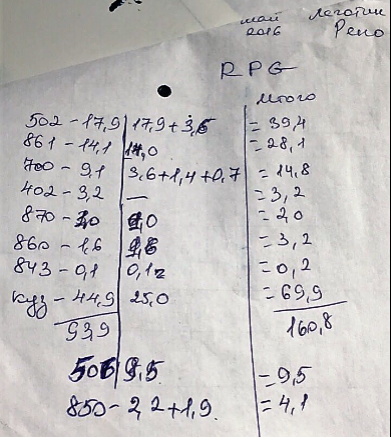 май Логотип
2016 Рено
RPG
Итого
502 - 17,9 17,9 + 3,6 = 39,4
861 - 14,1 14,0 = 28,1
700 - 9,1 3,6 + 1,4 + 0,7 = 14,8
402 - 3,2 — = 3,2
870 - = 2,0
860 - 1,6 = 3,2
843 - 0,1 0,1 = 0,2
куз - 44,9 25,0 = 69,9
93,9 160,8
506 9,5 = 9,5
850 - 2,2 + 1,9 = 4,1